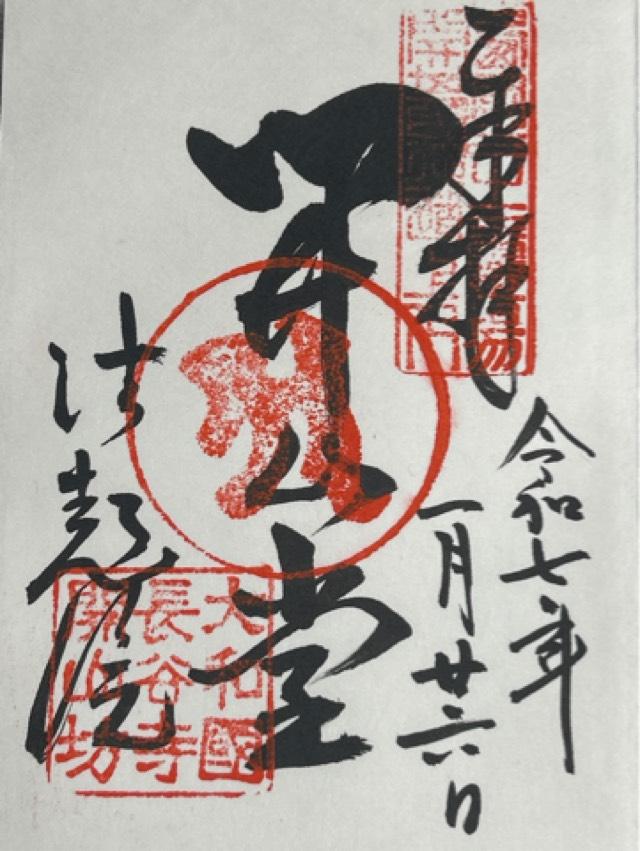 奉拝
令和七年
一月廿六日
開山堂
法起院
大和國
長谷寺
開山坊